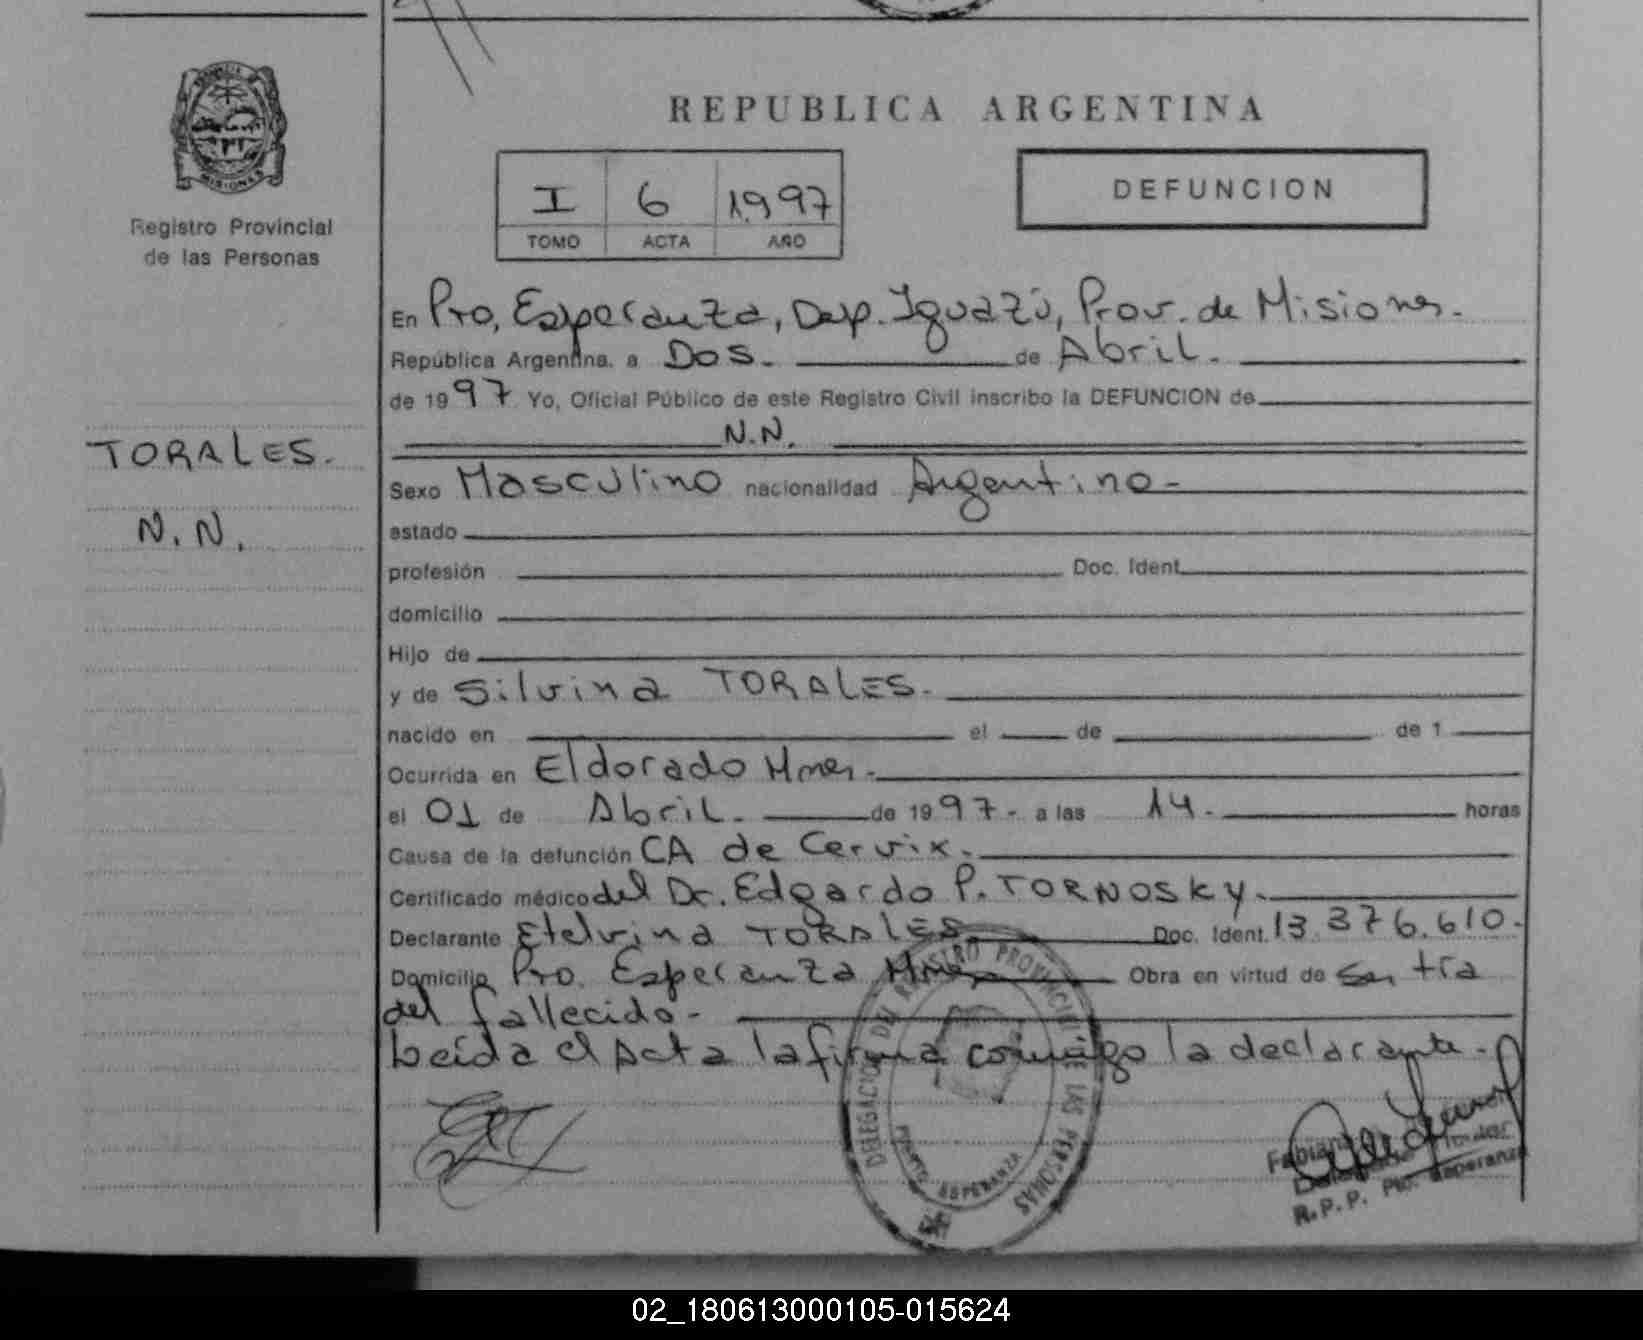 REPUBLICA ARGENTINA
PROVINCIA DE
MISIONES
Registro Provincial
de las Personas
TORALES.
N.N.
I 6 1.997
TOMO ACTA AÑO
DEFUNCION
En Pto, Esperanza, Dep. Iguazú, Prov. de Misiones.
República Argentina. a Dos. de Abril.
de 1997 Yo, Oficial Público de este Registro Civil inscribo la DEFUNCION de
N.N.
Sexo Masculino nacionalidad Argentino-
estado
profesión Doc. Ident.
domicilio
Hijo de
y de Silvina TORALES.
nacido en el de de 1
Ocurrida en Eldorado Mnes.
el 01 de Abril. de 1997- a las 14. horas
Causa de la defunción CA de Cervix.
Certificado médico del Dr. Edgardo P. TORNOSKY.
Declarante Etelvina TORALES Doc. Ident. 13.376.610.
Domicilio Pto. Esperanza Mnes Obra en virtud de Ser tía
del fallecido-
Leída el Acta la firma conmigo la declarante.
DELEGACION DEL REGISTRO PROVINCIAL DE LAS PERSONAS
PUERTO ESPERANZA
R.P.P. Pto. Esperanza
02_180613000105-015624